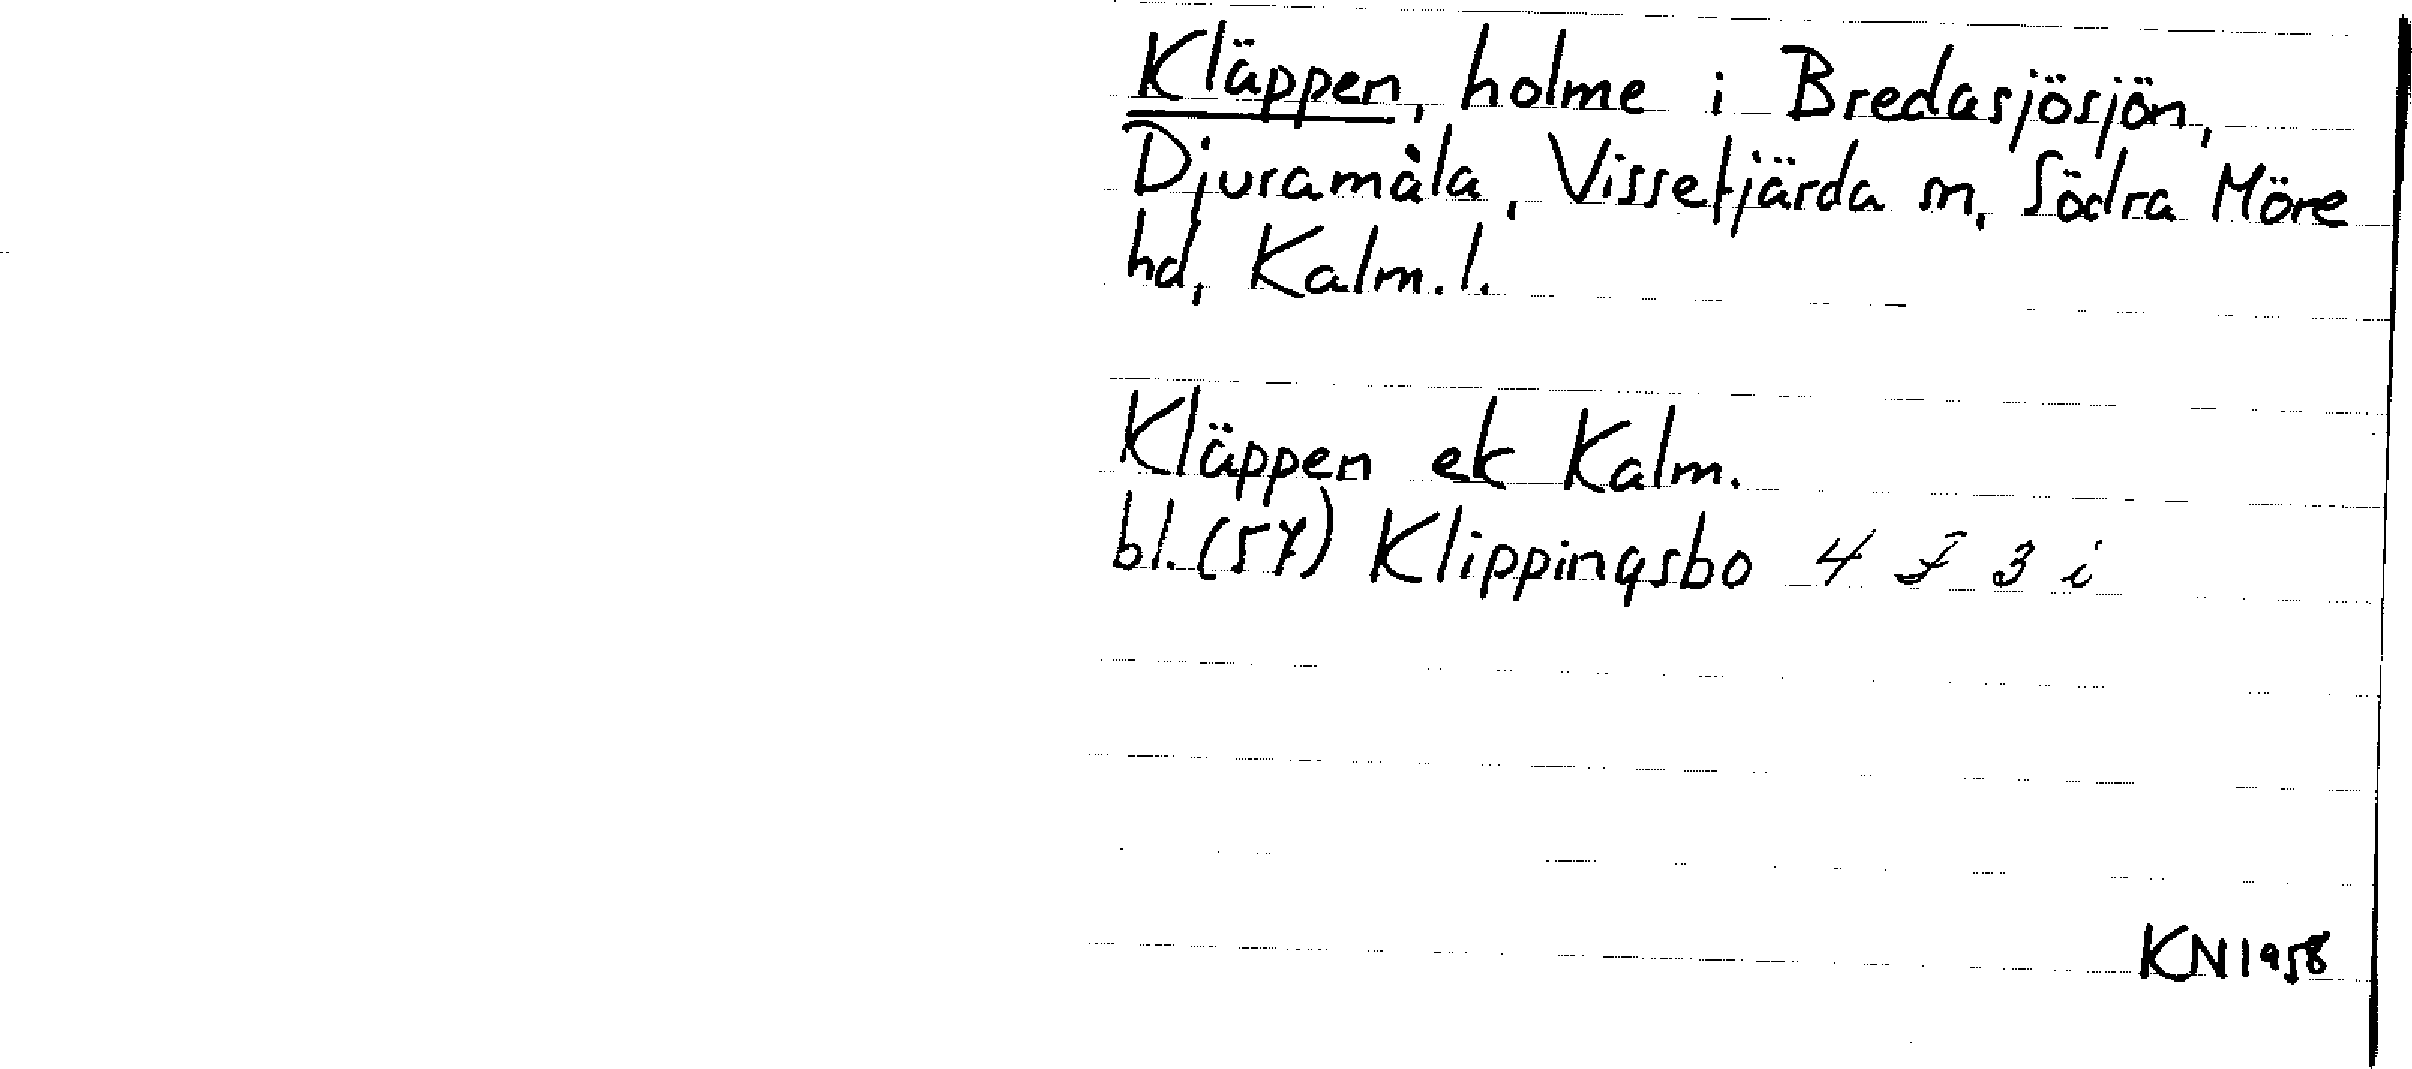 Kläppen, holme i Bredasjösjön,
Djuramåla, Vissefjärda sn, Södra Möre
hd, Kalm. l.
Kläppen ek Kalm.
bl. (57) Klippingsbo 4 F 3 i
KN 1958